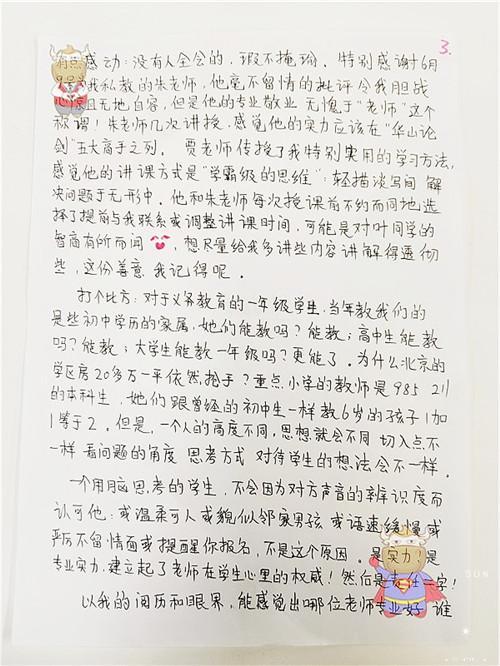 3.
感动：没有人全会的，瑕不掩瑜。特别感谢6月
我私教的朱老师，他毫不留情的批评令我胆战
且无地自容，但是他的专业敬业 无愧于“老师”这个
称谓！朱老师几次讲授，感觉他的实力应该在“华山论
剑”五大高手之列。 贾老师传授了我特别实用的学习方法，
感觉他的讲课方式是“学霸级的思维”：轻描淡写间 解
决问题于无形中。他和朱老师每次授课前不约而同地选
择了提前与我联系或调整讲课时间，可能是对叶同学的
智商有所而闻，想尽量给我多讲些内容讲解得透彻
些，这份善意 我记得呢。
打个比方：对于义务教育的一年级学生，当年教我们的
是些初中学历的家属，她们能教吗？能教；高中生能教
吗？能教；大学生能教一年级吗？更能了。为什么北京的
学区房20多万一平依然抢手？重点小学的教师是985 211
的本科生，她们跟曾经的初中生一样教6岁的孩子1加
1等于2。但是，一个人的高度不同，思想就会不同 切入点不
一样 看问题的角度 思考方式 对待学生的想法会不一样。
一个用脑思考的学生，不会因为对方声音的辨识度而
认可他：或温柔可人或貌似邻家男孩 或语速缓慢或
严厉不留情面或提醒你报名，不是这个原因。是实力！是
专业实力，建立起了老师在学生心里的权威！然后是责任一字！
以我的阅历和眼界，能感觉出哪位老师专业好 谁